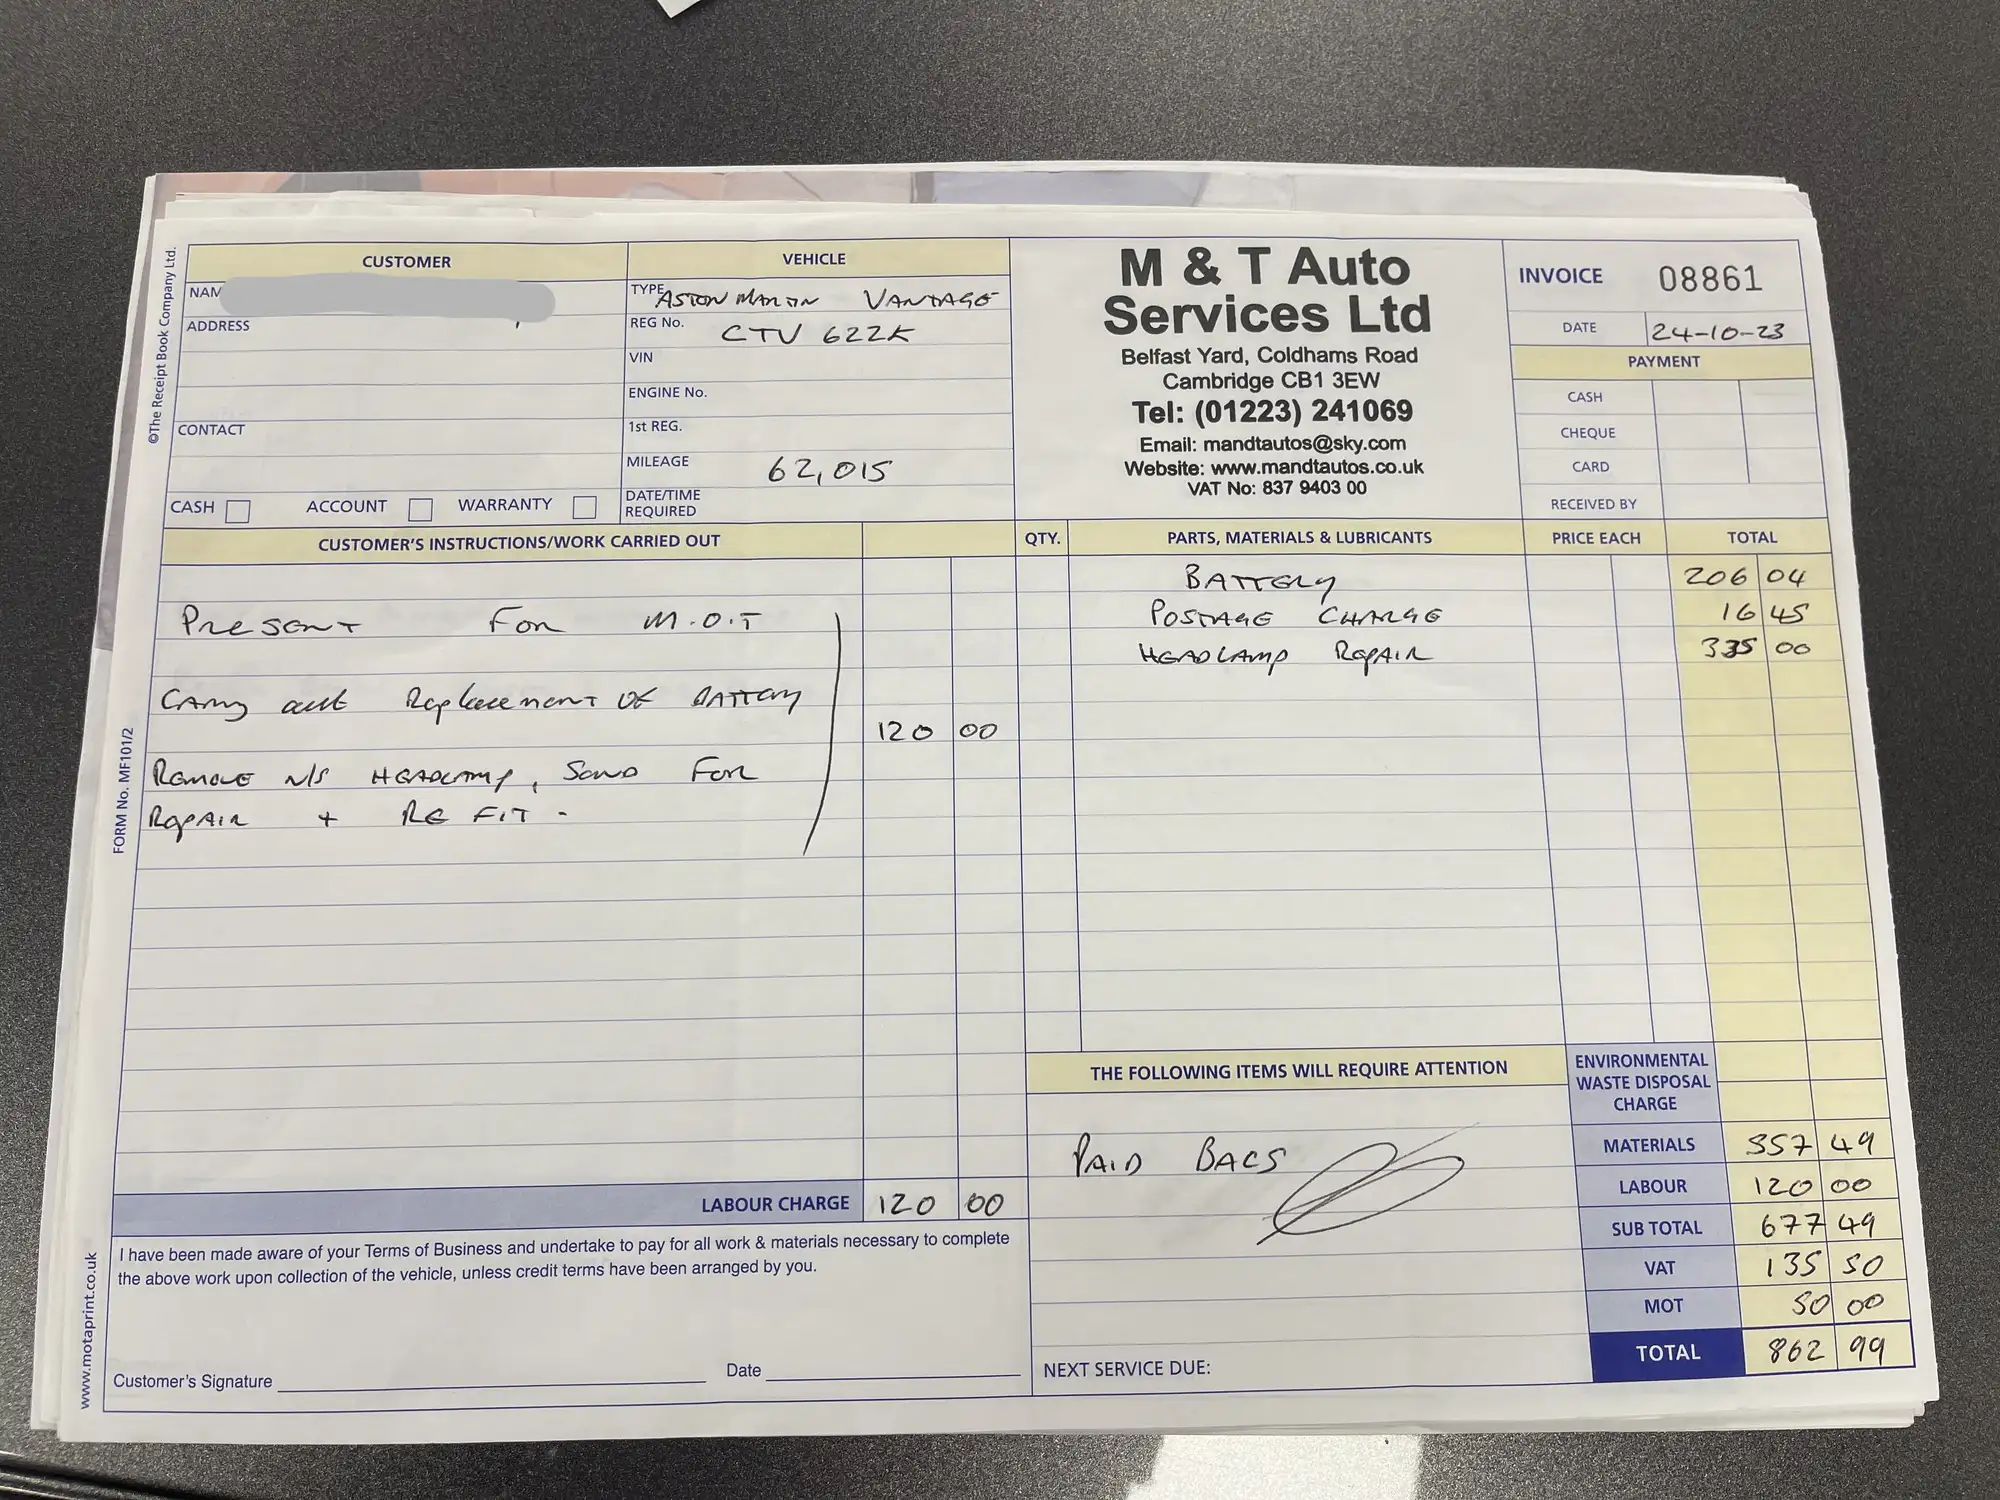 ©The Receipt Book Company Ltd.
FORM No. MF101/2
www.motaprint.co.uk
CUSTOMER
NAM
ADDRESS
CONTACT
CASH ACCOUNT WARRANTY
VEHICLE
TYPE ASTON MARTIN VANTAGE
REG No. CTV 622K
VIN
ENGINE No.
1st REG.
MILEAGE 62,015
DATE/TIME
REQUIRED
M & T Auto
Services Ltd
Belfast Yard, Coldhams Road
Cambridge CB1 3EW
Tel: (01223) 241069
Email: mandtautos@sky.com
Website: www.mandtautos.co.uk
VAT No: 837 9403 00
INVOICE 08861
DATE 24-10-23
PAYMENT
CASH
CHEQUE
CARD
RECEIVED BY
CUSTOMER'S INSTRUCTIONS/WORK CARRIED OUT
Present For M.O.T
Carry out Replacement OF BATTERY
120 00
Remove N/S HEADLAMP, Send For
Repair + RE FIT -
LABOUR CHARGE 120 00
I have been made aware of your Terms of Business and undertake to pay for all work & materials necessary to complete
the above work upon collection of the vehicle, unless credit terms have been arranged by you.
Customer's Signature Date
QTY. PARTS, MATERIALS & LUBRICANTS PRICE EACH TOTAL
BATTERY 206 04
POSTAGE CHARGE 16 45
HEADLAMP REPAIR 335 00
THE FOLLOWING ITEMS WILL REQUIRE ATTENTION
PAID BACS
NEXT SERVICE DUE:
ENVIRONMENTAL
WASTE DISPOSAL
CHARGE
MATERIALS 557 49
LABOUR 120 00
SUB TOTAL 677 49
VAT 135 50
MOT 50 00
TOTAL 862 99